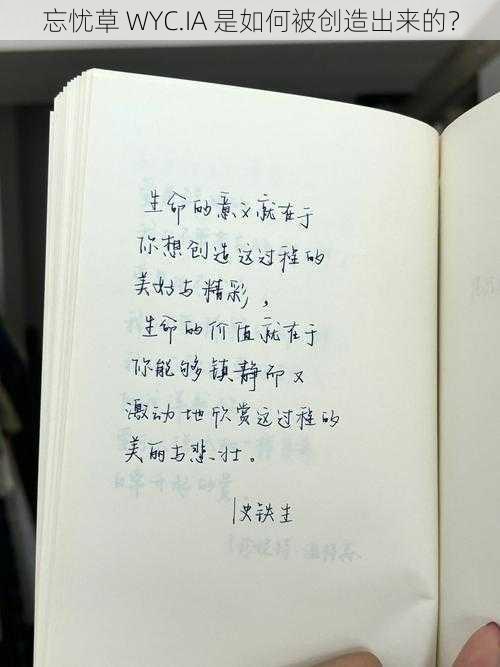 忘忧草 WYC.IA 是如何被创造出来的？
生命的意义就在于
你想创造这过程的
美好与精彩，
生命的价值就在于
你能够镇静而又
激动地欣赏这过程的
美丽与悲壮。
史铁生